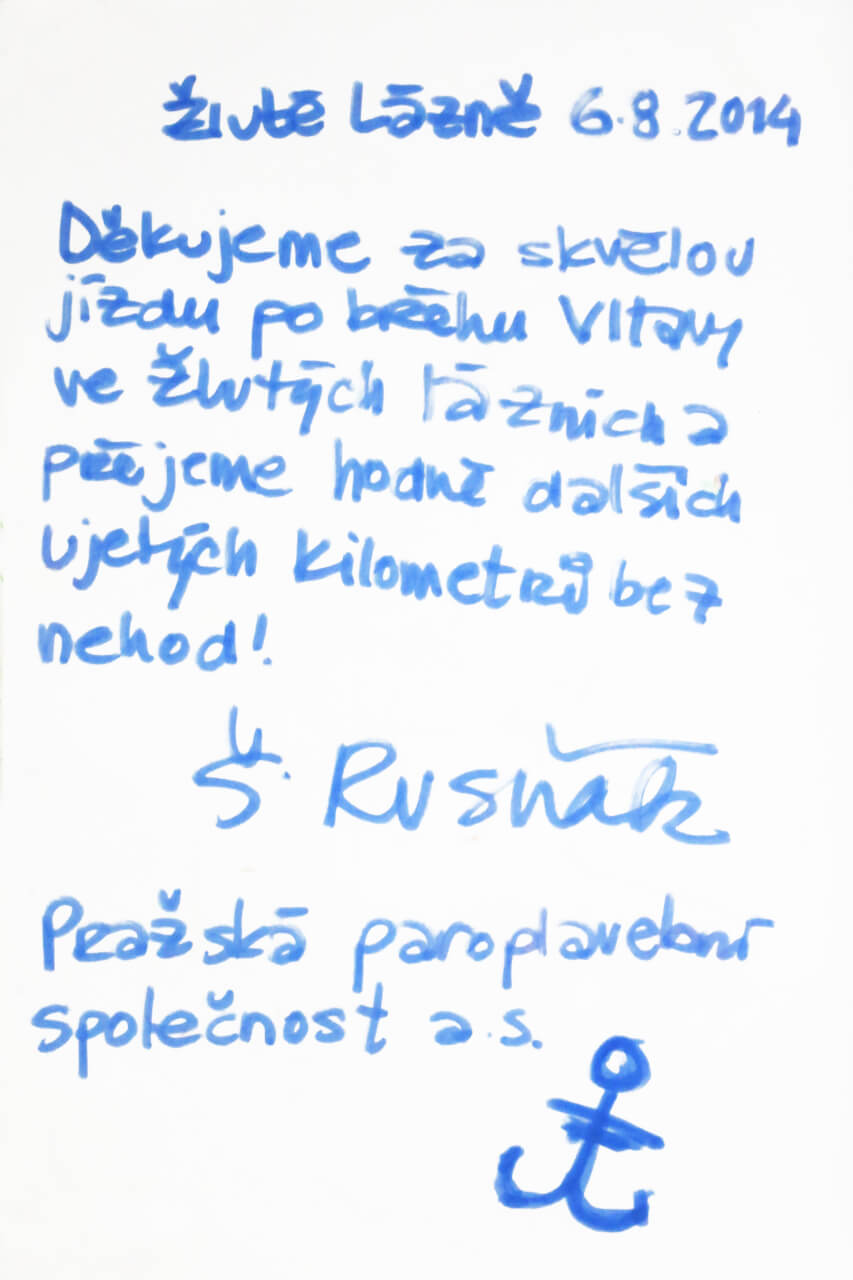 Žlutē Lāzně 6.8.2014
Děkujeme za skvělou
jízdu po břehu Vltavy
ve Žlutých lázních a
přejeme hodně dalších
ujetých kilometrů bez
nehod!
Š. Rusňák
Pražská paroplavební
společnost a.s.